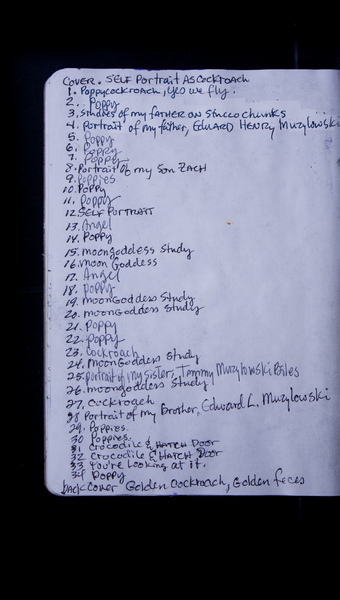 COVER. SELF Portrait AS COCKROACH
1. Poppycockroach, yes we fly.
2. Poppy
3. Studies of my father on Stucco chunks
4. Portrait of my father, EDWARD HENRY Muzylowski
5. Poppy
6. Poppy
7. Poppy
8. Portrait of my Son ZACH
9. Poppies
10. Poppy
11. Poppy
12. SELF PORTRAIT
13. Angel
14. Poppy
15. moongoddess Study
16. moon Goddess
17. Angel
18. Poppy
19. moonGoddess Study
20. moongoddess Study
21. Poppy
22. Poppy
23. Cockroach
24. MoonGoddess Study
25. portrait of my sister, Tammy Muzylowski
26. moongoddess Study
27. Cockroach
28 Portrait of my Brother, Edward L. Muzylowski
29. Poppies.
30 Poppies.
31 Crocodile & HATCH Door
32 Crocodile & HATCH Door
33 You're Looking at it.
34 Poppy
back Cover Golden Cockroach, Golden feces